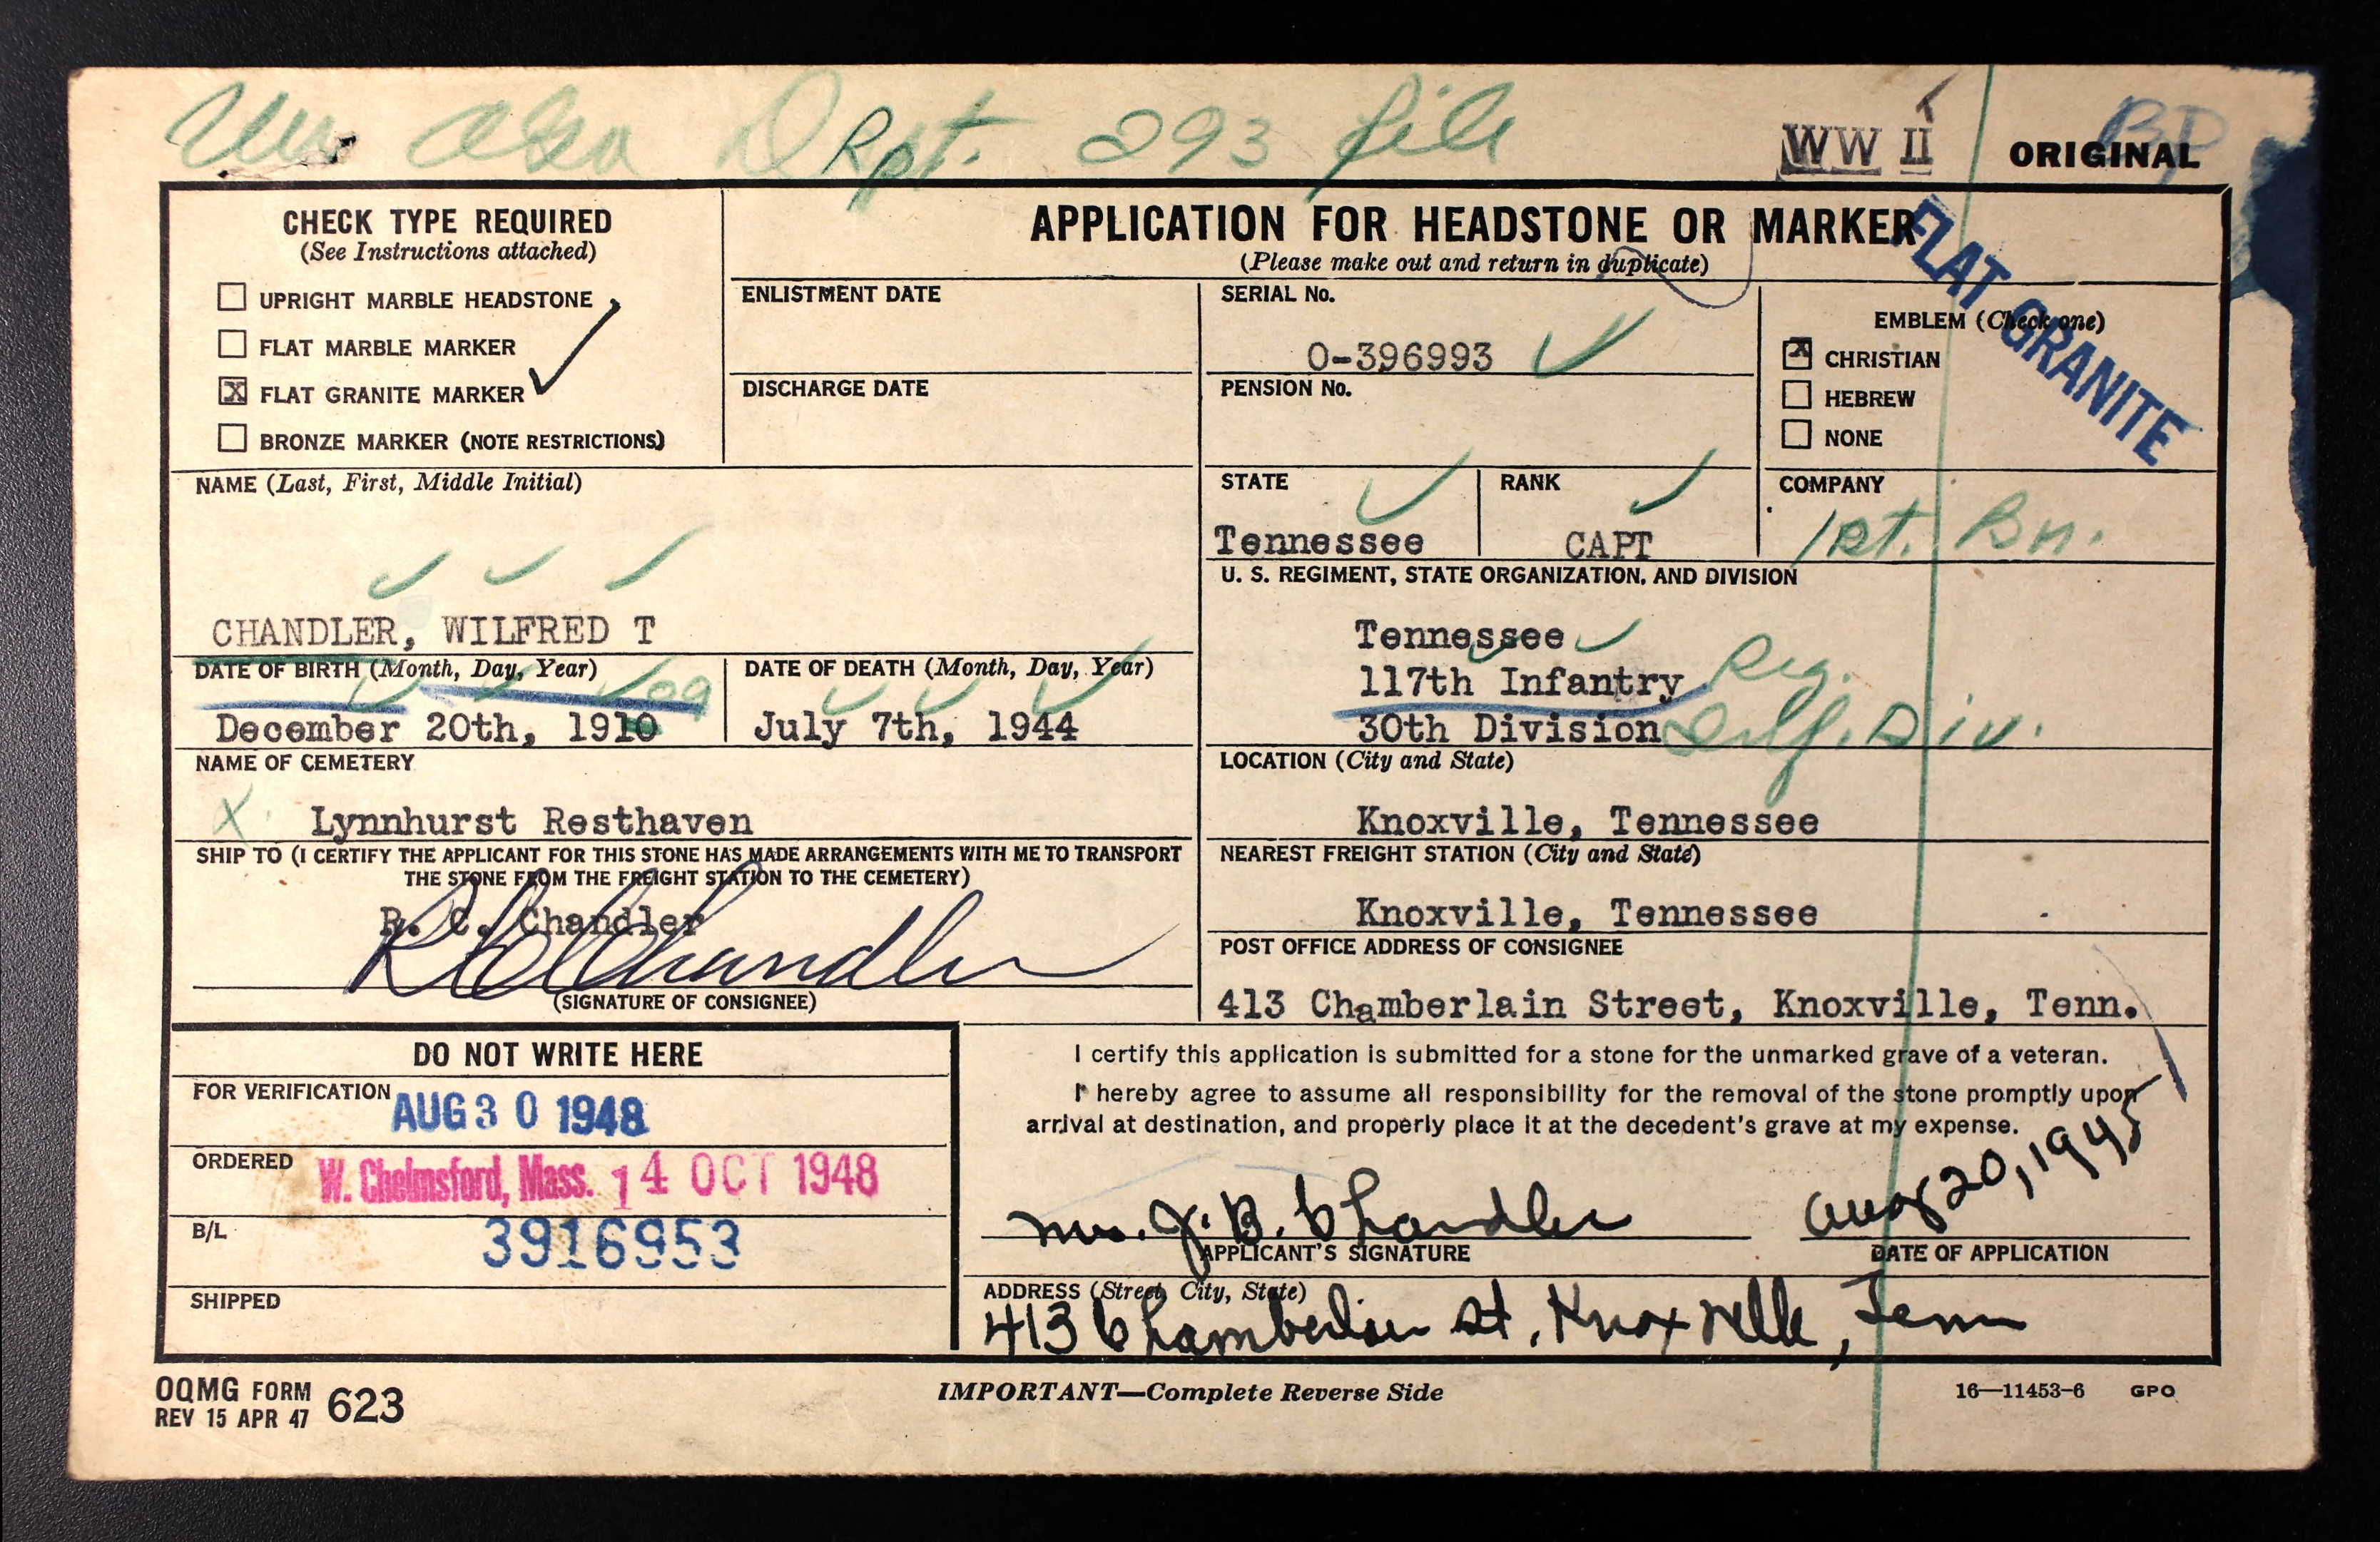 Rpt. 293 file
WW II
ORIGINAL
BD
CHECK TYPE REQUIRED
(See Instructions attached)
UPRIGHT MARBLE HEADSTONE
FLAT MARBLE MARKER
X FLAT GRANITE MARKER
BRONZE MARKER (NOTE RESTRICTIONS)
APPLICATION FOR HEADSTONE OR MARKER
(Please make out and return in duplicate)
FLAT GRANITE
ENLISTMENT DATE
DISCHARGE DATE
SERIAL No.
O-396993
PENSION No.
EMBLEM (Check one)
X CHRISTIAN
HEBREW
NONE
NAME (Last, First, Middle Initial)
CHANDLER, WILFRED T
STATE
Tennessee
RANK
CAPT
COMPANY
1st. Bn.
U. S. REGIMENT, STATE ORGANIZATION, AND DIVISION
Tennessee
117th Infantry Reg.
30th Division Inf. Div.
DATE OF BIRTH (Month, Day, Year)
09
December 20th, 1910
DATE OF DEATH (Month, Day, Year)
July 7th, 1944
NAME OF CEMETERY
X Lynnhurst Resthaven
LOCATION (City and State)
Knoxville, Tennessee
SHIP TO (I CERTIFY THE APPLICANT FOR THIS STONE HAS MADE ARRANGEMENTS WITH ME TO TRANSPORT
THE STONE FROM THE FREIGHT STATION TO THE CEMETERY)
R. C. Chandler
R C Chandler
(SIGNATURE OF CONSIGNEE)
NEAREST FREIGHT STATION (City and State)
Knoxville, Tennessee
POST OFFICE ADDRESS OF CONSIGNEE
413 Chamberlain Street, Knoxville, Tenn.
DO NOT WRITE HERE
FOR VERIFICATION AUG 30 1948
ORDERED W. Chelmsford, Mass. 14 OCT 1948
B/L 3916953
SHIPPED
I certify this application is submitted for a stone for the unmarked grave of a veteran.
I hereby agree to assume all responsibility for the removal of the stone promptly upon
arrival at destination, and properly place it at the decedent's grave at my expense.
Mrs. J. B. Chandler
APPLICANT'S SIGNATURE
Aug 20, 1948
DATE OF APPLICATION
ADDRESS (Street, City, State)
413 Chamberlain St. Knoxville, Tenn
OQMG FORM 623
REV 15 APR 47
IMPORTANT—Complete Reverse Side
16—11453-6 GPO